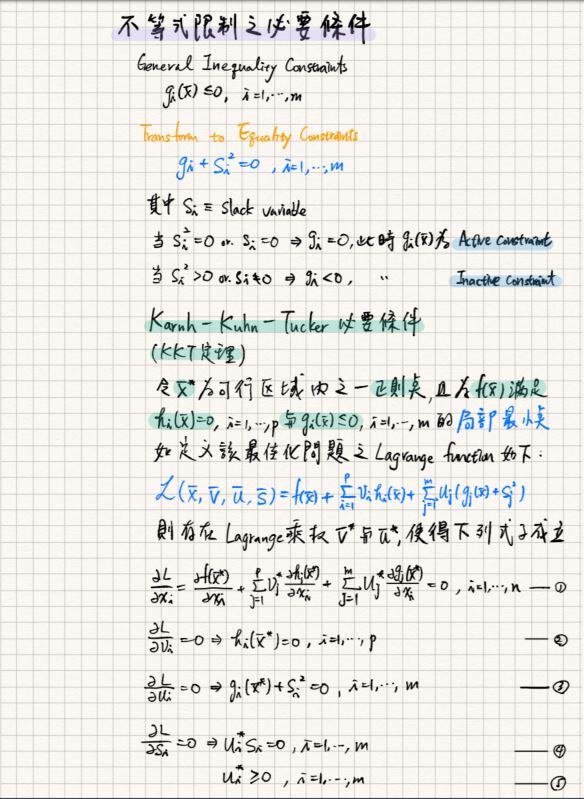 不等式限制之必要條件
General Inequality Constraints
gᵢ(x̄) ≤0, i=1,⋯,m
Transform to Equality Constraints
gᵢ + Sᵢ² =0 , i=1,⋯,m
其中 Sᵢ ≡ Slack variable
當 Sᵢ²=0 or. Sᵢ=0 ⇒ gᵢ=0, 此時 gᵢ(x̄)為 Active constraint
當 Sᵢ²>0 or. Sᵢ≠0 ⇒ gᵢ<0, 〃 Inactive Constraint
Karnh-Kuhn-Tucker 必要條件
(KKT定理)
令 x̄* 為可行區域內之一正則點, 且為 f(x̄) 滿足
hᵢ(x̄)=0, i=1,⋯,p 與 gᵢ(x̄)≤0, i=1,⋯,m 的局部最小點
如定义該最佳化問題之 Lagrange function 如下:
L(x̄, v̄, ū, s̄) = f(x̄) + Σᵢ₌₁ᵖ vᵢhᵢ(x̄) + Σⱼ₌₁ᵐ uⱼ(gⱼ(x̄) + sⱼ²)
則存在 Lagrange乘数 v̄* 與 ū*, 使得下列式子成立
∂L/∂xᵢ = ∂f(x̄*)/∂xᵢ + Σⱼ₌₁ᵖ vⱼ* ∂hⱼ(x̄*)/∂xᵢ + Σⱼ₌₁ᵐ uⱼ* ∂gⱼ(x̄*)/∂xᵢ = 0 , i=1,⋯,n —①
∂L/∂vᵢ =0 ⇒ hᵢ(x̄*)=0, i=1,⋯,p —②
∂L/∂uᵢ =0 ⇒ gᵢ(x̄*)+Sᵢ²=0, i=1,⋯,m —③
∂L/∂Sᵢ =0 ⇒ uᵢ*Sᵢ=0, i=1,⋯,m —④
uᵢ* ≥0 , i=1,⋯,m —⑤